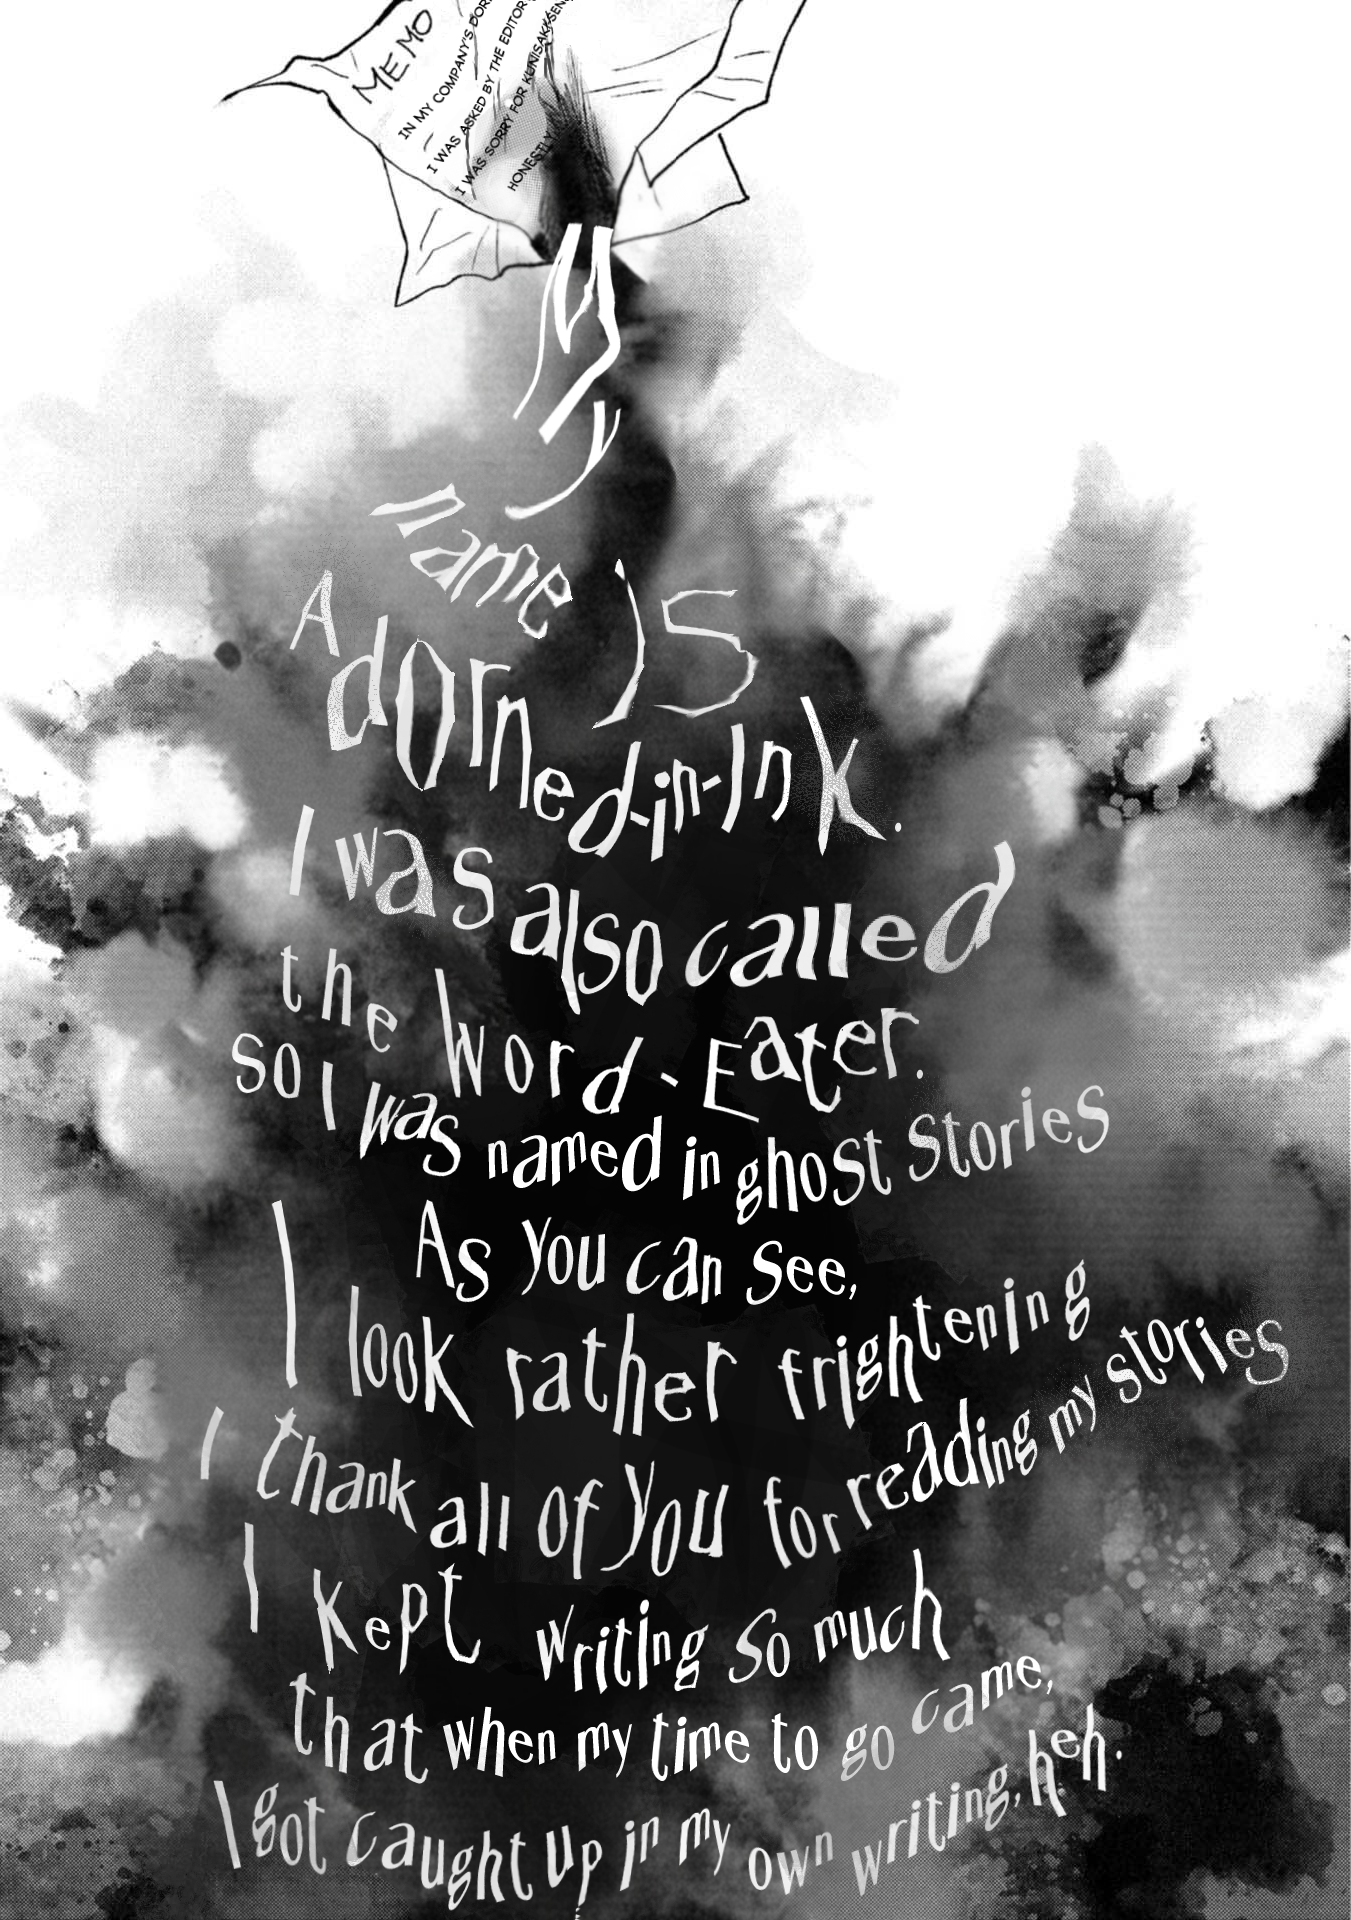 MEMO
IN MY COMPANY'S
I WAS ASKED BY THE EDITOR
I WAS SORRY FOR KUNISAKI-SEN
HONESTLY
My
name is
Adorned-in-Ink.
I was also called
the Word-Eater.
so I was named in ghost Stories
As you can see,
I look rather frightening
I thank all of you for reading my stories
I kept writing so much
that when my time to go came,
I got caught up in my own writing, heh.